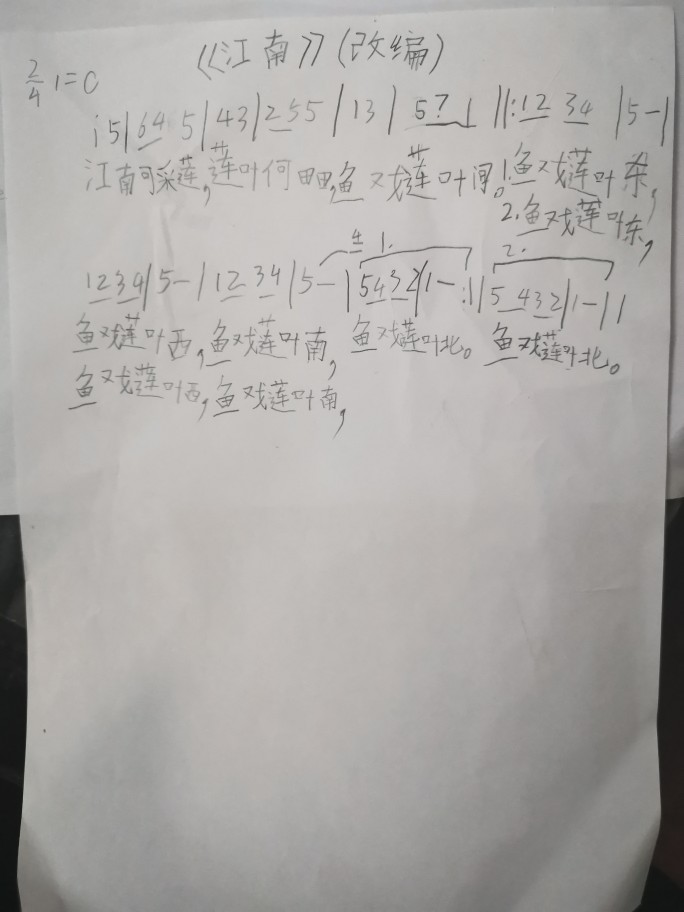 《江南》(改编)
2/4 1=C
i 5|64 5|43|255|13|57 1||:12 34|5-|
江南可采莲,莲叶何田田,鱼戏莲叶间。1.鱼戏莲叶东,
2.鱼戏莲叶东,
1.
2.
1234|5-|12 34|5-|5432|1-:||5 432|1-||
鱼戏莲叶西,鱼戏莲叶南,鱼戏莲叶北。鱼戏莲叶北。
鱼戏莲叶西,鱼戏莲叶南,